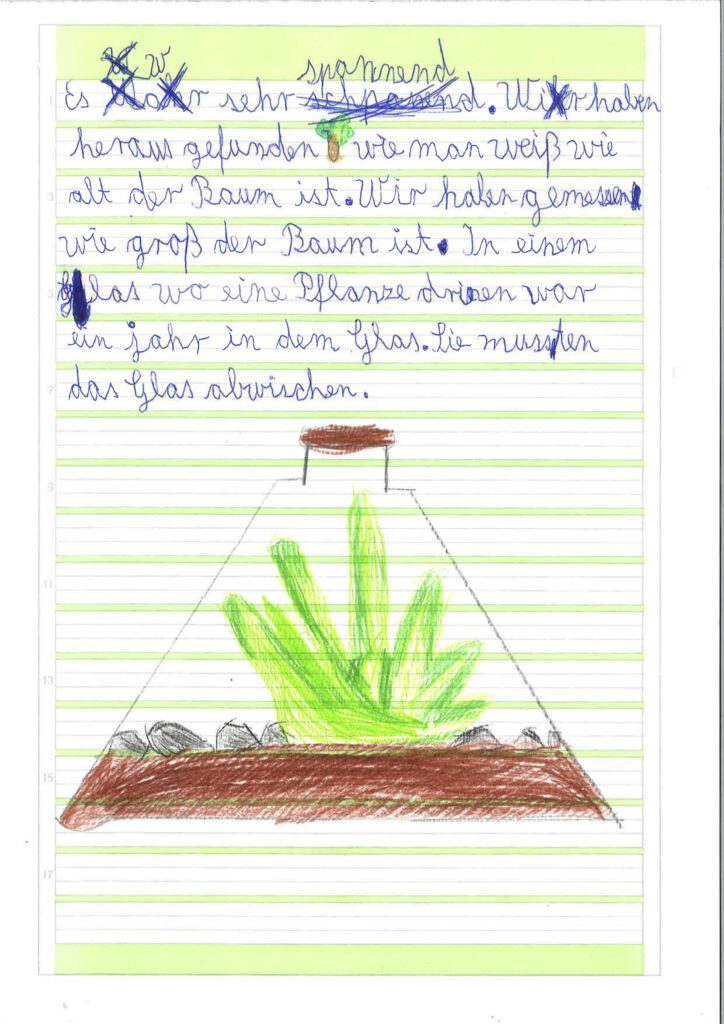 w spannend
1 Es ar sehr. Wir haben
heraus gefunden wie man weiß wie
3 alt der Baum ist. Wir haben gemessen
wie groß der Baum ist. In einem
5 Glas wo eine Pflanze drinen war
ein jahr in dem Glas. Sie mussten
7 das Glas abwischen.
9
11
13
15
17